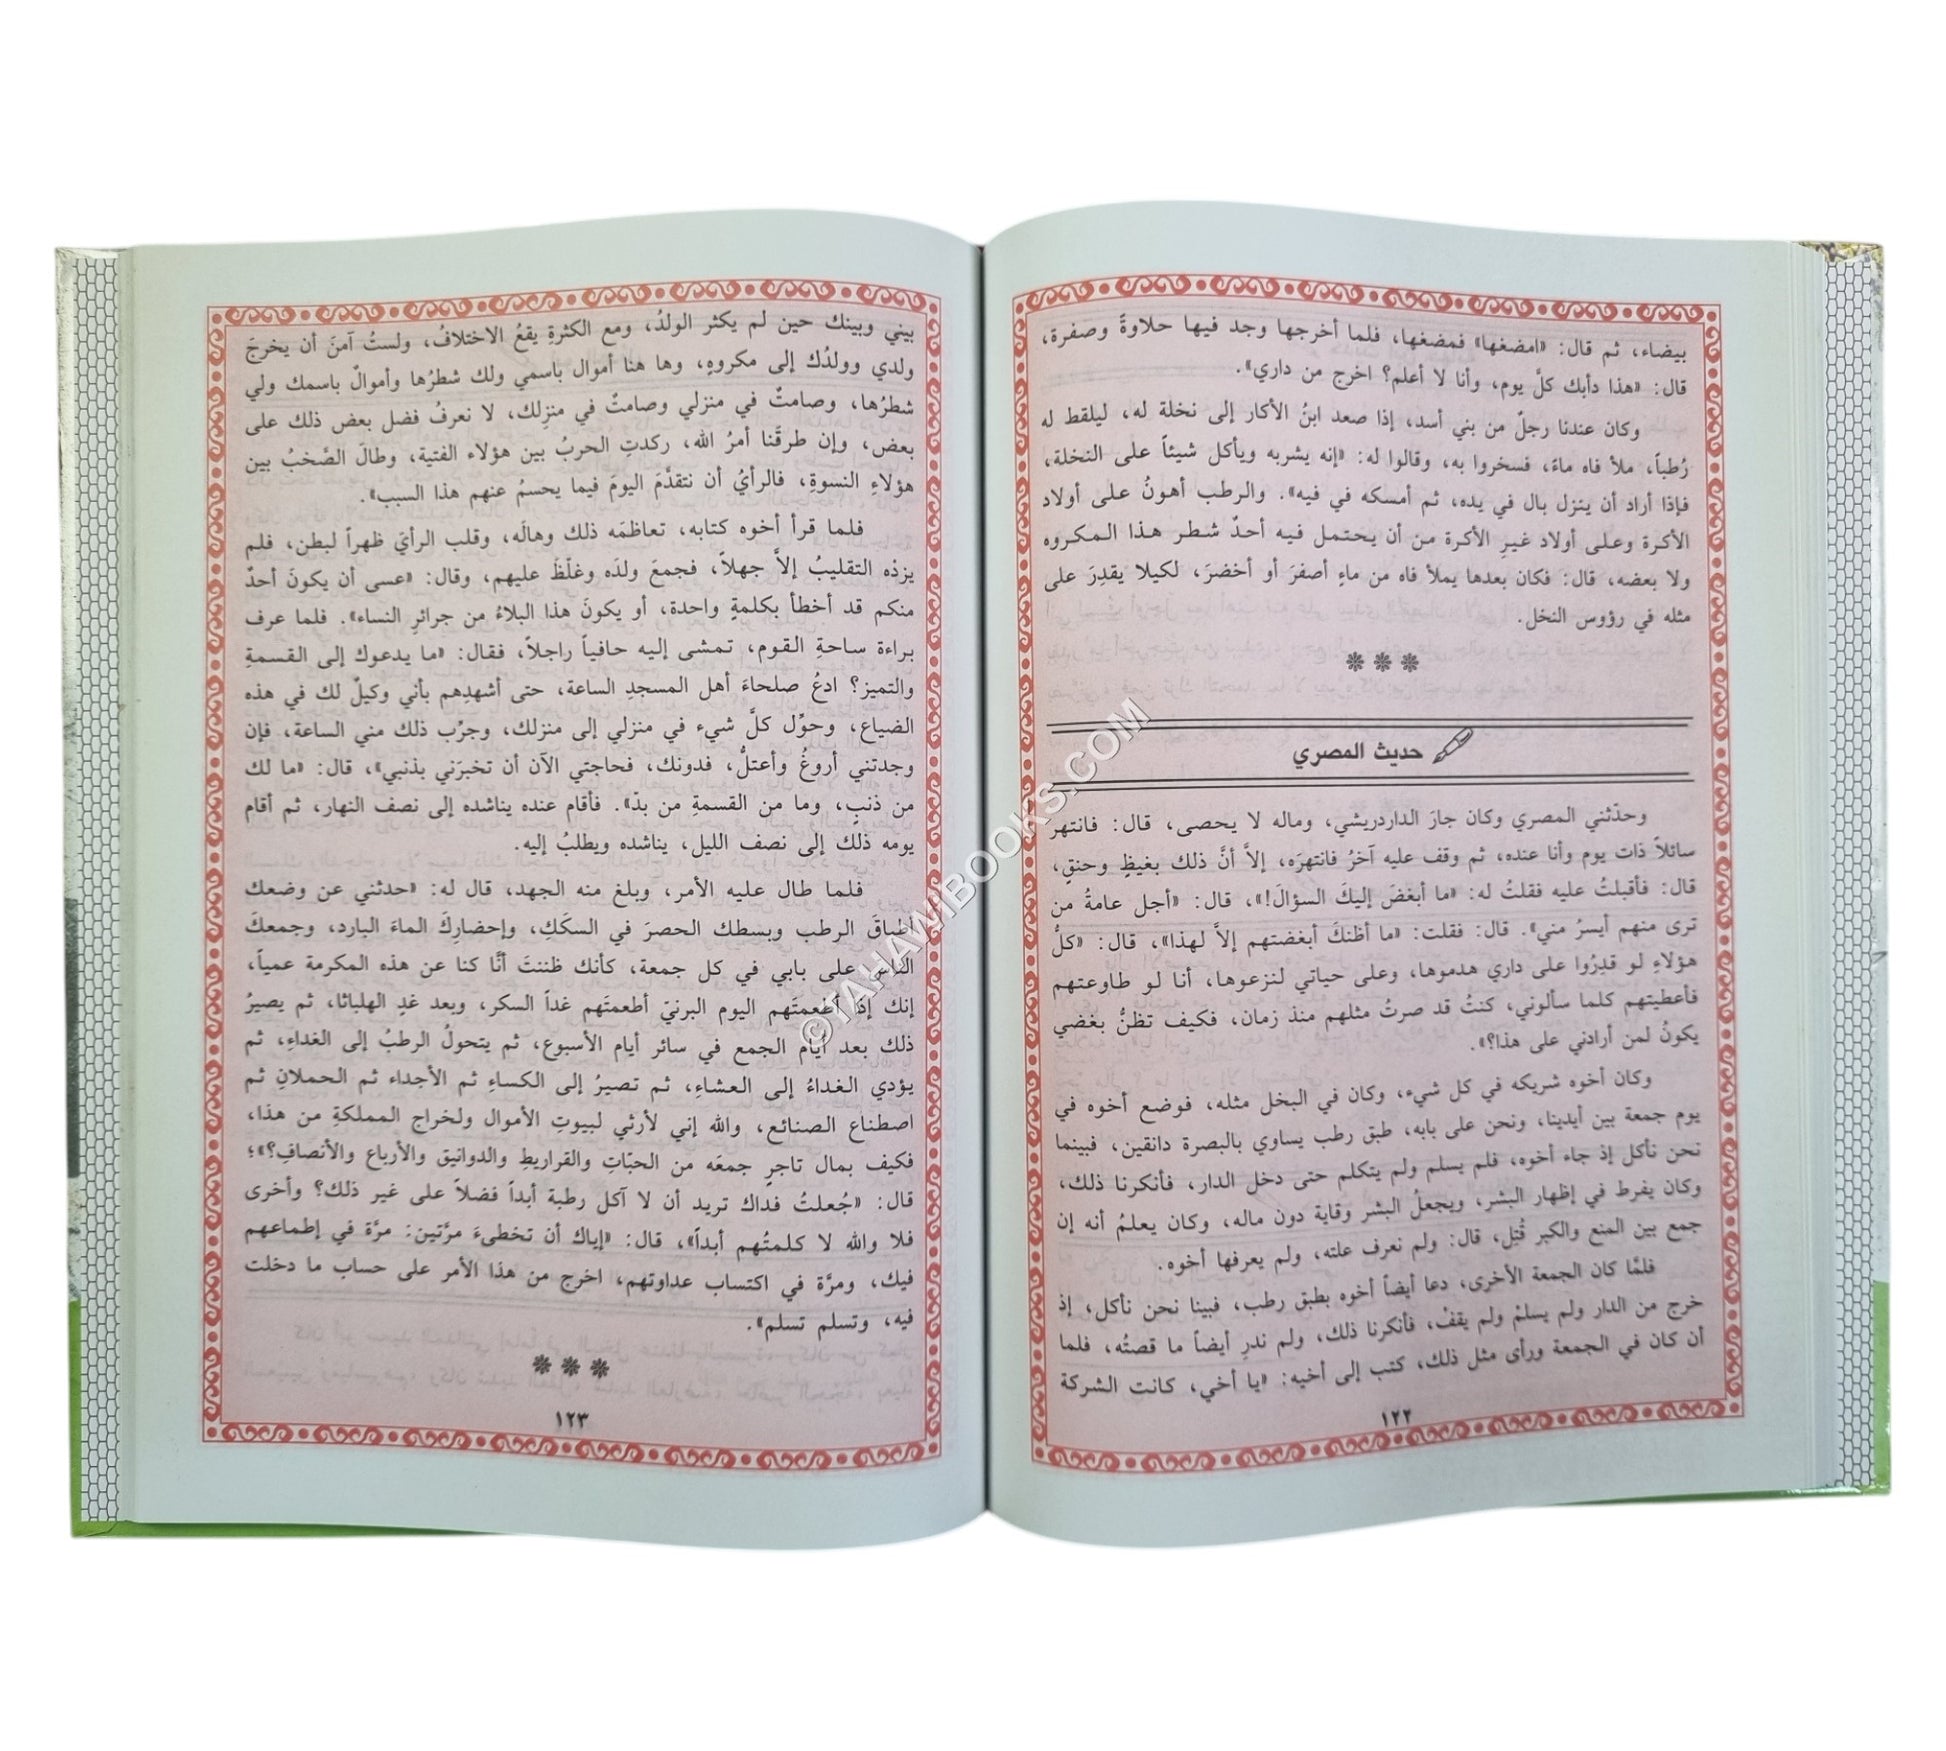 بيضاء، ثم قال: «امضغها» فمضغها، فلما أخرجها وجد فيها حلاوةً وصفرة،
قال: «هذا دأبك كلَّ يوم، وأنا لا أعلم؟ اخرج من داري».
وكان عندنا رجلٌ من بني أسد، إذا صعد ابنُ الأكار إلى نخلة له، ليلقط له
رُطباً، ملأ فاه ماءً، فسخروا به، وقالوا له: «إنه يشربه ويأكل شيئاً على النخلة،
فإذا أراد أن ينزل بال في يده، ثم أمسكه في فيه». والرطب أهونُ على أولاد
الأكرة وعلى أولاد غيرِ الأكرة من أن يحتمل فيه أحدٌ شطر هذا المكروه
ولا بعضه، قال: فكان بعدها يملأ فاه من ماءٍ أصفرَ أو أخضرَ، لكيلا يقدِرَ على
مثله في رؤوس النخل.
حديث المصري
وحدّثني المصري وكان جارَ الداردريشي، وماله لا يحصى، قال: فانتهر
سائلاً ذات يوم وأنا عنده، ثم وقف عليه آخرُ فانتهرَه، إلاَّ أنَّ ذلك بغيظٍ وحنقٍ،
قال: فأقبلتُ عليه فقلتُ له: «ما أبغضَ إليكَ السؤالَ!»، قال: «أجل عامةُ من
ترى منهم أيسرُ مني». قال: فقلت: «ما أظنكَ أبغضتهم إلاَّ لهذا»، قال: «كلُّ
هؤلاءِ لو قدِرُوا على داري هدموها، وعلى حياتي لنزعوها، أنا لو طاوعتهم
فأعطيتهم كلما سألوني، كنتُ قد صرتُ مثلهم منذ زمان، فكيف تظنُّ بغضي
يكونُ لمن أرادني على هذا؟».
وكان أخوه شريكه في كل شيء، وكان في البخل مثله، فوضع أخوه في
يوم جمعة بين أيدينا، ونحن على بابه، طبق رطب يساوي بالبصرة دانقين، فبينما
نحن نأكل إذ جاء أخوه، فلم يسلم ولم يتكلم حتى دخل الدار، فأنكرنا ذلك،
وكان يفرط في إظهار البشر، ويجعلُ البشر وقاية دون ماله، وكان يعلمُ أنه إن
جمع بين المنع والكبر قُتِل، قال: ولم نعرف علته، ولم يعرفها أخوه.
فلمَّا كان الجمعة الأخرى، دعا أيضاً أخوه بطبق رطب، فبينا نحن نأكل، إذ
خرج من الدار ولم يسلمْ ولم يقفْ، فأنكرنا ذلك، ولم ندرِ أيضاً ما قصتُه، فلما
أن كان في الجمعة ورأى مثل ذلك، كتب إلى أخيه: «يا أخي، كانت الشركة
١٢٢
بيني وبينك حين لم يكثر الولدُ، ومع الكثرةِ يقعُ الاختلافُ، ولستُ آمنَ أن يخرجَ
ولدي وولدُك إلى مكروهٍ، وها هنا أموال باسمي ولك شطرُها وأموالٌ باسمك ولي
شطرُها، وصامتٌ في منزلي وصامتٌ في منزِلك، لا نعرفُ فضل بعض ذلك على
بعض، وإن طرقَنا أمرُ الله، ركدتِ الحربُ بين هؤلاء الفتية، وطالَ الصَّخبُ بين
هؤلاءِ النسوةِ، فالرأيُ أن نتقدَّمَ اليومَ فيما يحسمُ عنهم هذا السبب».
فلما قرأ أخوه كتابه، تعاظمَه ذلك وهالَه، وقلب الرأيَ ظهراً لبطن، فلم
يزدْه التقليبُ إلاَّ جهلاً، فجمعَ ولدَه وغلّظَ عليهم، وقال: «عسى أن يكونَ أحدٌ
منكم قد أخطأ بكلمةٍ واحدة، أو يكونَ هذا البلاءُ من جرائرِ النساء». فلما عرف
براءة ساحةِ القوم، تمشى إليه حافياً راجلاً، فقال: «ما يدعوك إلى القسمةِ
والتميز؟ ادعُ صلحاءَ أهل المسجدِ الساعة، حتى أشهدِهم بأني وكيلٌ لك في هذه
الضياع، وحوِّل كلَّ شيء في منزلي إلى منزلك، وجرِّب ذلك مني الساعة، فإن
وجدتني أروغُ وأعتلُّ، فدونك، فحاجتي الآن أن تخبرَني بذنبي»، قال: «ما لك
من ذنبٍ، وما من القسمةِ من بدّ». فأقام عنده يناشده إلى نصف النهار، ثم أقام
يومه ذلك إلى نصف الليل، يناشده ويطلبُ إليه.
فلما طال عليه الأمر، وبلغ منه الجهد، قال له: «حدثني عن وضعك
أطباقَ الرطب وبسطك الحصرَ في السكَكِ، وإحضارِكَ الماءَ البارد، وجمعكَ
الناسَ على بابي في كل جمعة، كأنك ظننتَ أنَّا كنا عن هذه المكرمة عمياً،
إنك إذا أطعمتَهم اليوم البرنيّ أطعمتَهم غداً السكر، وبعد غدٍ الهلباثا، ثم يصيرُ
ذلك بعد أيام الجمع في سائر أيام الأسبوع، ثم يتحولُ الرطبُ إلى الغداءِ، ثم
يؤدي الغداءُ إلى العشاءِ، ثم تصيرُ إلى الكساءِ ثم الأجداء ثم الحملانِ ثم
اصطناع الصنائع، والله إني لأرثي لبيوتِ الأموال ولخراج المملكةِ من هذا،
فكيف بمال تاجرٍ جمعَه من الحبّاتِ والقراريطِ والدوانيق والأرباع والأنصافِ؟»؛
قال: «جُعلتُ فداك تريد أن لا آكل رطبة أبداً فضلاً على غير ذلك؟ وأخرى
فلا والله لا كلمتُهم أبداً»، قال: «إياك أن تخطىءَ مرَّتين: مرَّة في إطماعهم
فيك، ومرَّة في اكتساب عداوتهم، اخرج من هذا الأمر على حساب ما دخلت
فيه، وتسلم تسلم».
١٢٣
©TAHAWIBOOKS.COM